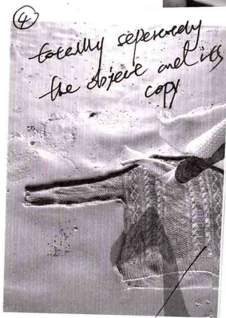 4
totally seperatedy
the object and its
copy